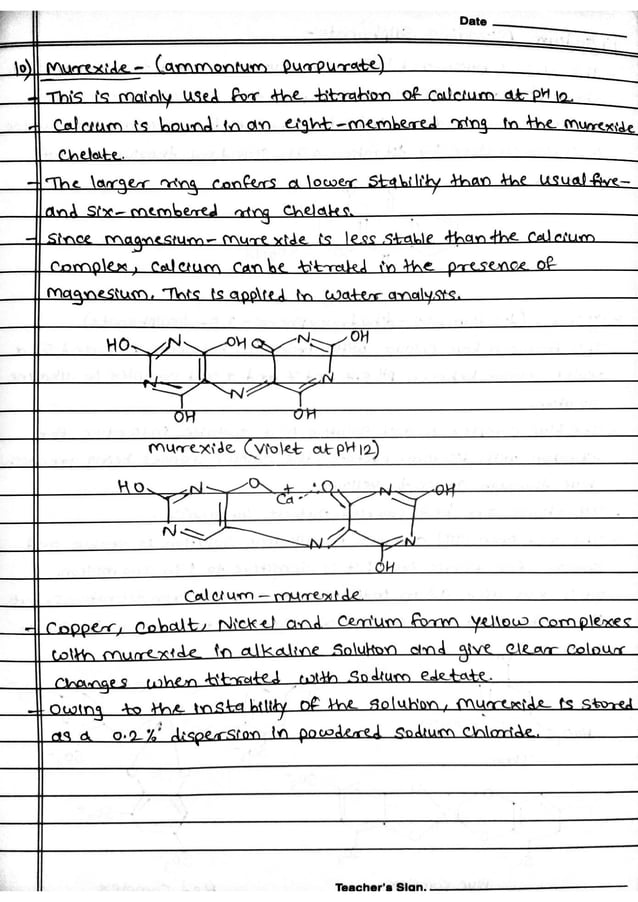 Date
10) Murrexide - (ammonium purpurate)
- This is mainly used for the titration of calcium at pH 12
- Calcium is bound in an eight-membered ring in the murrexide
chelate.
- The larger ring confers a lower stability than the usual five-
and six-membered ring chelates.
- Since magnesium-murexide is less stable than the calcium
complex, calcium can be titrated in the presence of
magnesium. This is applied in water analysts.
HO N OH O N OH
N N N
OH OH
murrexide (violet at pH 12)
HO N O + Ca O N OH
N N N
OH
Calcium - murrexide
- Copper, Cobalt, Nickel and Cerium form yellow complexes
with murrexide in alkaline solution and give clear colour
changes when titrated with sodium edetate.
- Owing to the instability of the solution, murrexide is stored
as a 0.2% dispersion in powdered sodium chloride.
Teacher's Sign.